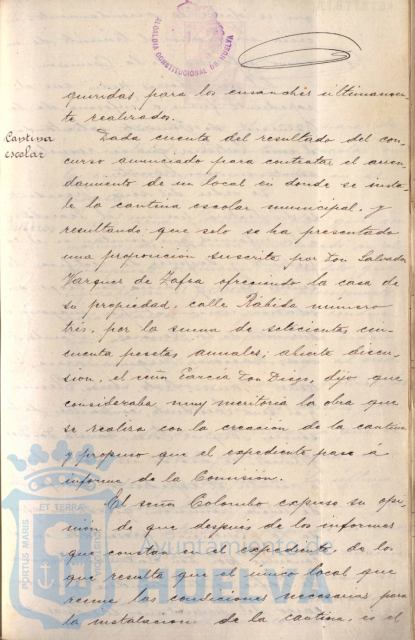 ALCALDIA CONSTITUCIONAL DE HUELVA
queridas para los ensanches ultimamen-
te realizados.
Cantina
escolar
Dada cuenta del resultado del con-
curso anunciado para contratar el arren-
damiento de un local en donde se insta-
le la cantina escolar municipal, y
resultando que solo se ha presentado
una proposición suscrita por Don Salvador
Vazquez de Zafra ofreciendo la casa de
su propiedad, calle Rábida número
tres, por la suma de setecientas cin-
cuenta pesetas anuales; abierta discu-
sion, el señor García Don Diego, dijo que
consideraba muy meritoria la obra que
se realiza con la creacion de la cantina
y propuso que el expediente pase á
informe de la Comisión.
El señor Colombo expuso su opi-
nión de que después de los informes
que constan en el expediente, de los
que resulta que el único local que
reune las condiciones necesarias para
la instalacion de la cantina, es el
PORTUS MARIS
ET TERRA
Ayuntamiento de
HUELVA